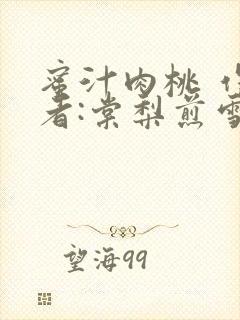 蜜汁肉桃 作
者:棠梨煎雪
望海99